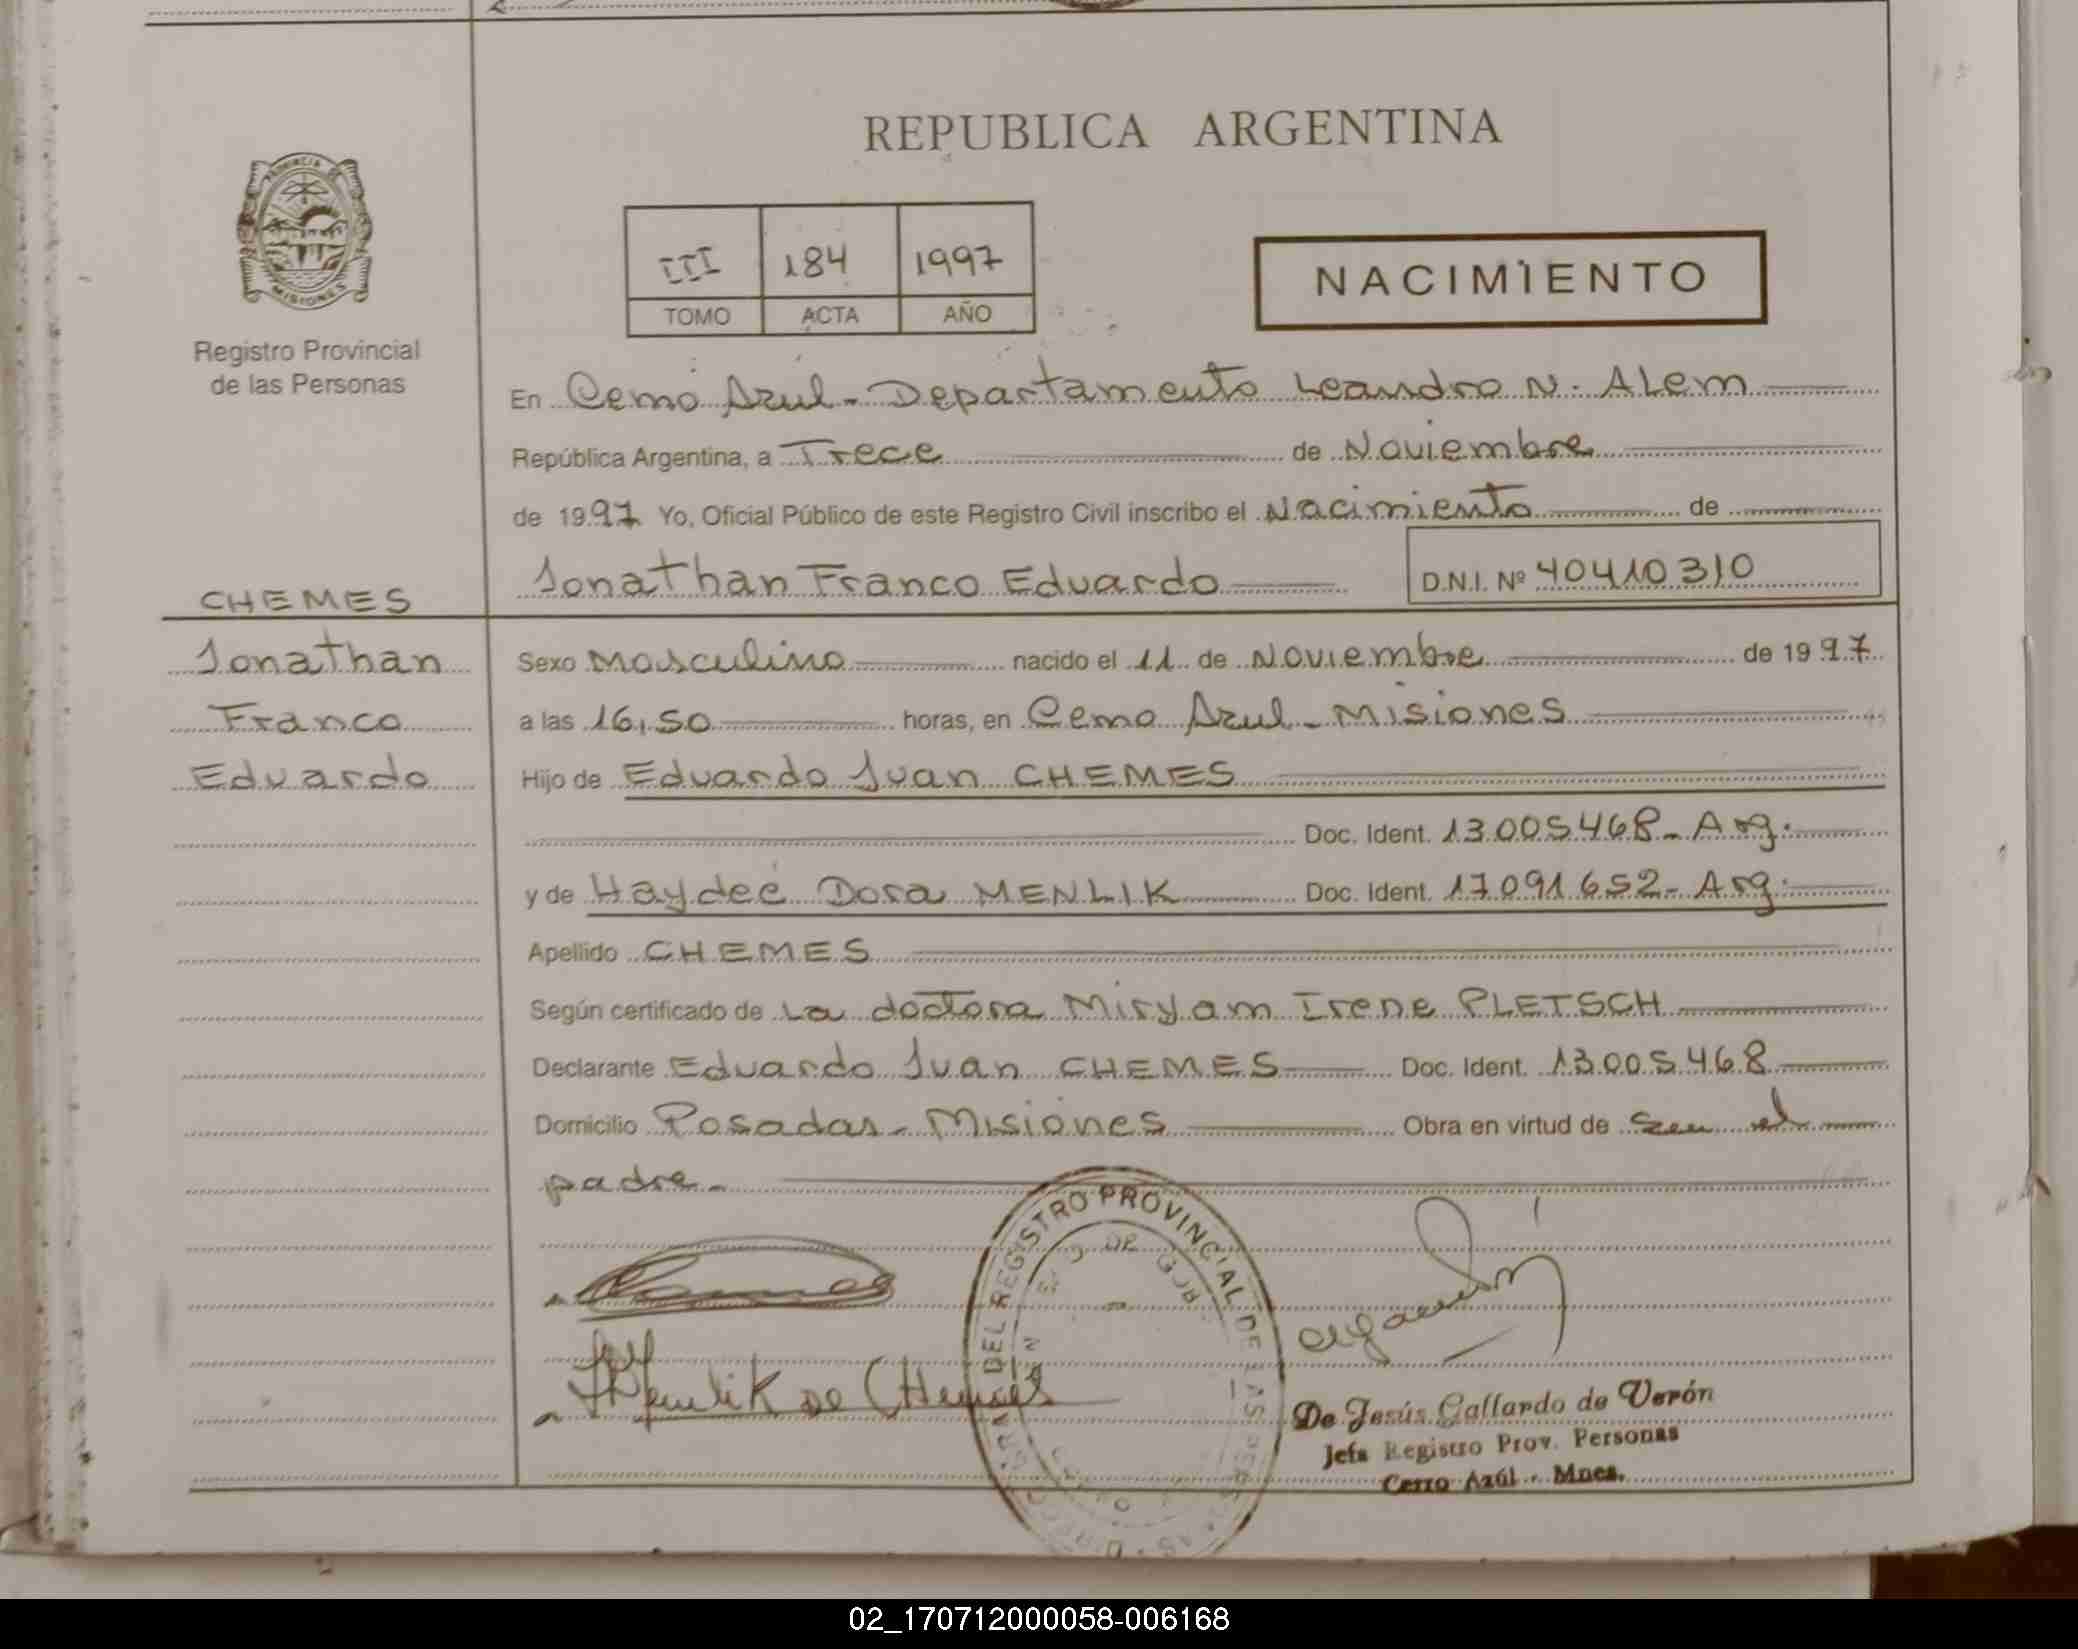 REPUBLICA ARGENTINA
PROVINCIA DE
MISIONES
Registro Provincial
de las Personas
III 184 1997
TOMO ACTA AÑO
NACIMIENTO
En Cerro Azul - Departamento Leandro N. Alem
República Argentina, a Trece de Noviembre
de 1997 Yo, Oficial Público de este Registro Civil inscribo el Nacimiento de
Jonathan Franco Eduardo D.N.I. Nº 40410310
CHEMES
Jonathan
Franco
Eduardo
Sexo Masculino nacido el 11 de Noviembre de 1997
a las 16,50 horas, en Cerro Azul - Misiones
Hijo de Eduardo Juan CHEMES
Doc. Ident. 13.005.468 - Arg.
y de Haydeé Dora MENLIK Doc. Ident. 17.091.652 - Arg.
Apellido CHEMES
Según certificado de La doctora Miryam Irene PLETSCH
Declarante Eduardo Juan CHEMES Doc. Ident. 13.005.468
Domicilio Posadas - Misiones Obra en virtud de ser el
padre -
DEL REGISTRO PROVINCIAL DE LAS PERSONAS
Menlik de Chemes
De Jesús Gallardo de Verón
Jefa Registro Prov. Personas
Cerro Azúl - Mnes.
02_170712000058-006168